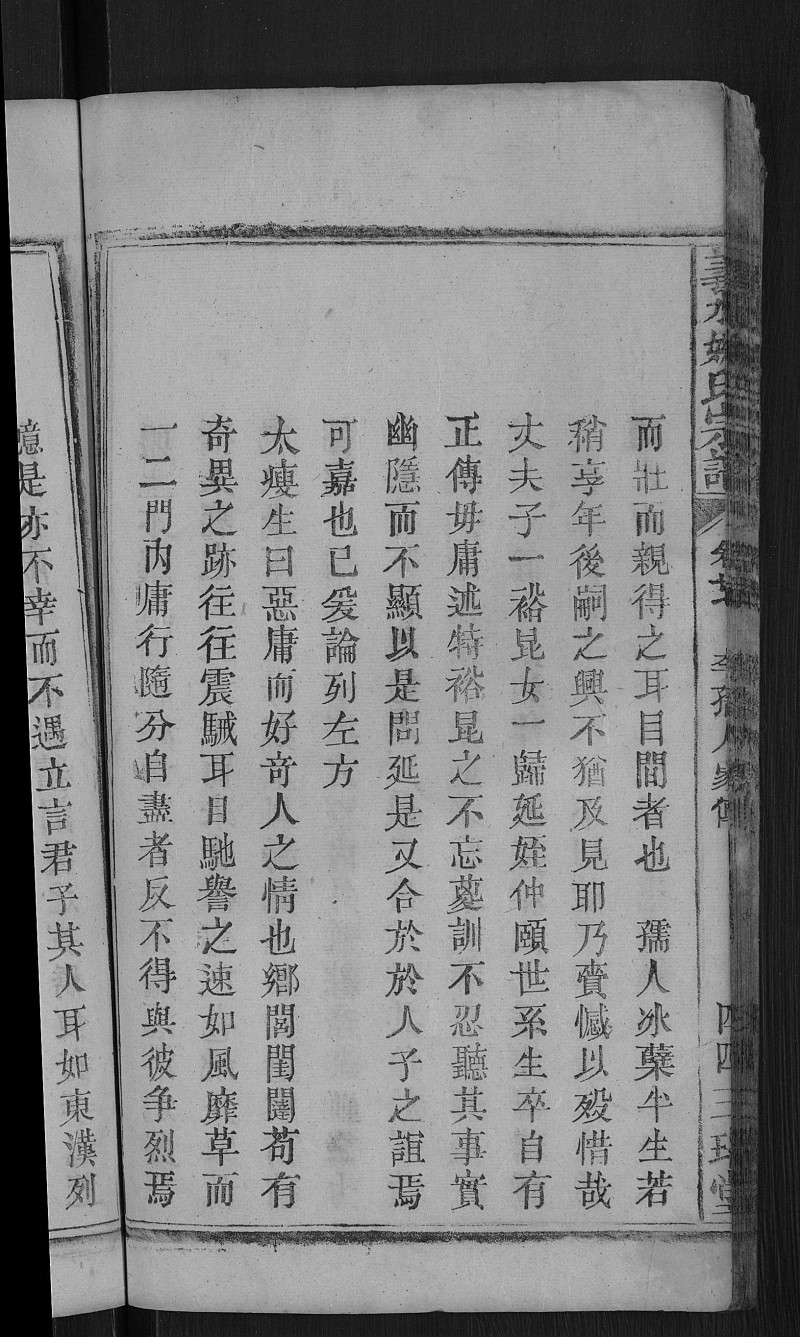 姚氏宗譜
而壯而親得之耳目間者也　孺人冰蘖半生若
稍享年後嗣之興不猶及見耶乃賫憾以歿惜哉
丈夫子一裕昆女一歸延姪仲頤世系生卒自有
正傳毋庸述特裕昆之不忘薧訓不忍聽其事實
幽隱而不顯以是問延是又合於於人子之誼焉
可嘉也已爰論列左方
太瘦生曰惡庸而好奇人之情也鄉閭閨闥苟有
奇異之跡往往震駴耳目馳譽之速如風靡草而
一二門內庸行隨分自盡者反不得與彼爭烈焉
是亦不幸而不遇立言君子其人耳如東漢列